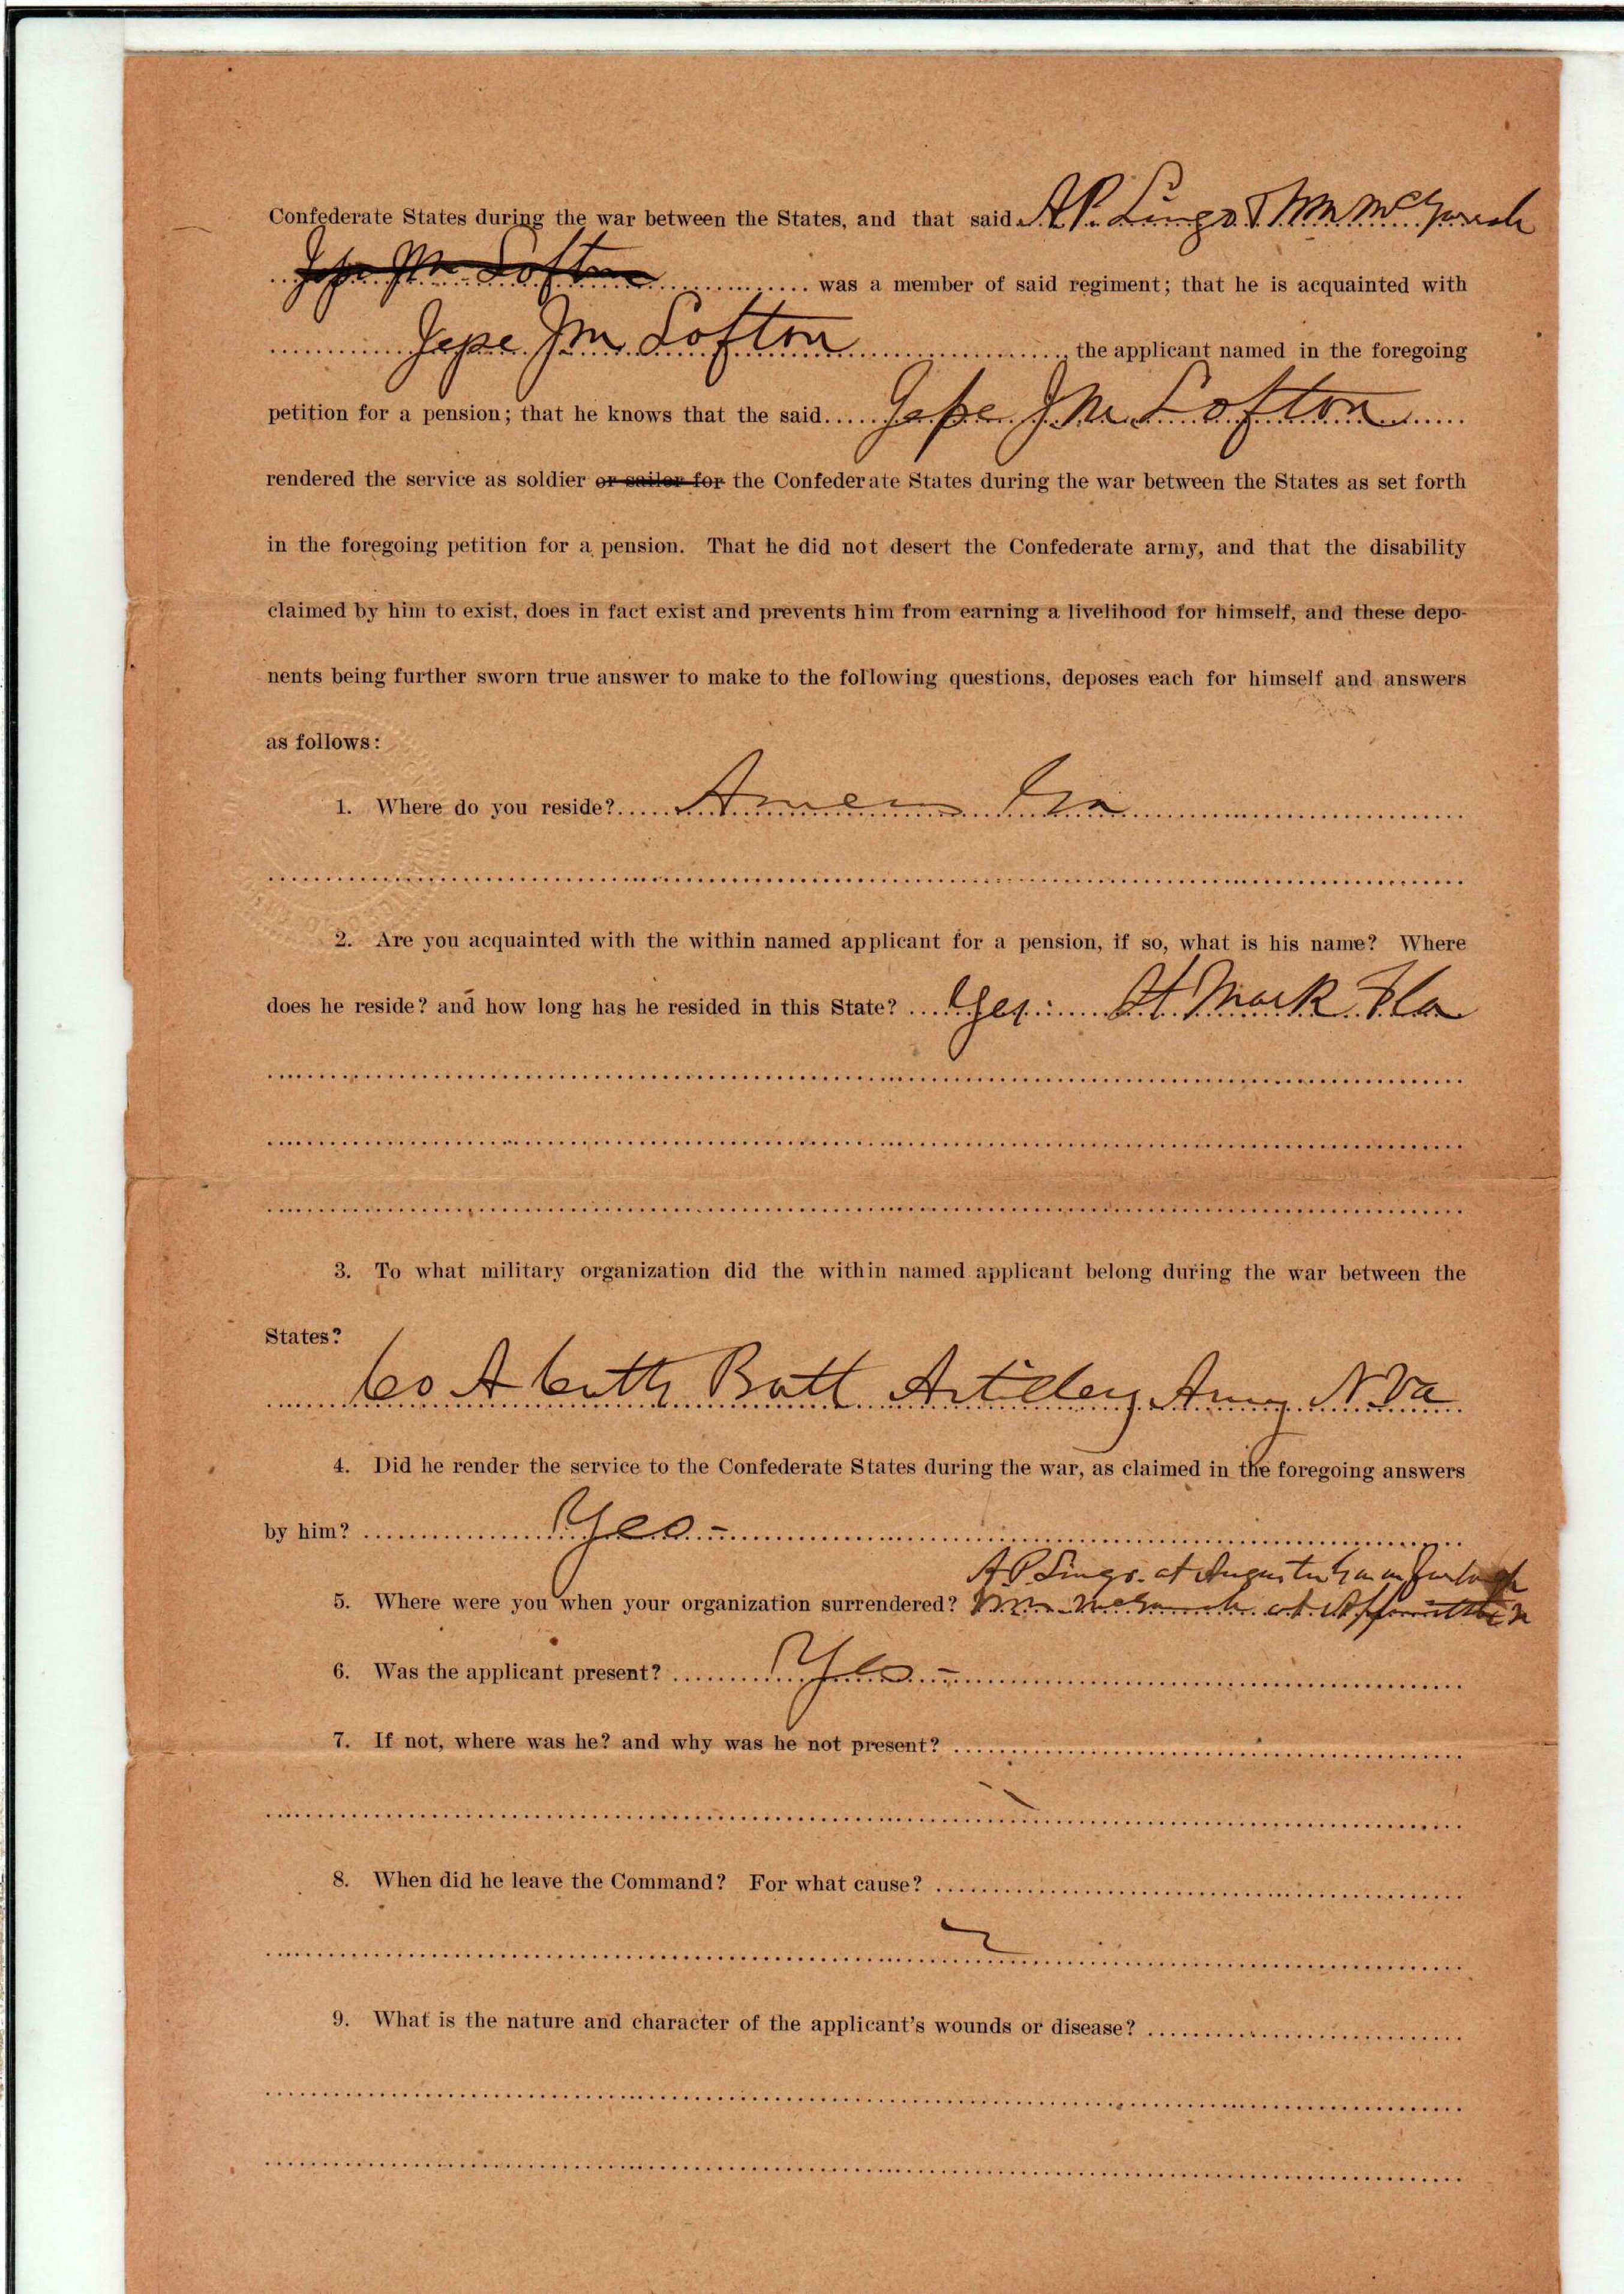 Confederate States during the war between the States, and that said A.P. Lingo & Wm McGarrah
Jesse M Lofton was a member of said regiment; that he is acquainted with
Jesse M Lofton, the applicant named in the foregoing
petition for a pension; that he knows that the said Jesse M Lofton
rendered the service as soldier or sailor for the Confederate States during the war between the States as set forth
in the foregoing petition for a pension. That he did not desert the Confederate army, and that the disability
claimed by him to exist, does in fact exist and prevents him from earning a livelihood for himself, and these depo-
nents being further sworn true answer to make to the following questions, deposes each for himself and answers
as follows:
1. Where do you reside? Ga
2. Are you acquainted with the within named applicant for a pension, if so, what is his name? Where
does he reside? and how long has he resided in this State? Yes: St Mark Fla
3. To what military organization did the within named applicant belong during the war between the
States?
Co A Cutts Batt Artillery Army N Va
4. Did he render the service to the Confederate States during the war, as claimed in the foregoing answers
by him? Yes -
A.P. Lingo at Augusta Ga on furlough
5. Where were you when your organization surrendered? Wm McGarrah at Appomattox
6. Was the applicant present? Yes -
7. If not, where was he? and why was he not present?
8. When did he leave the Command? For what cause?
9. What is the nature and character of the applicant's wounds or disease?